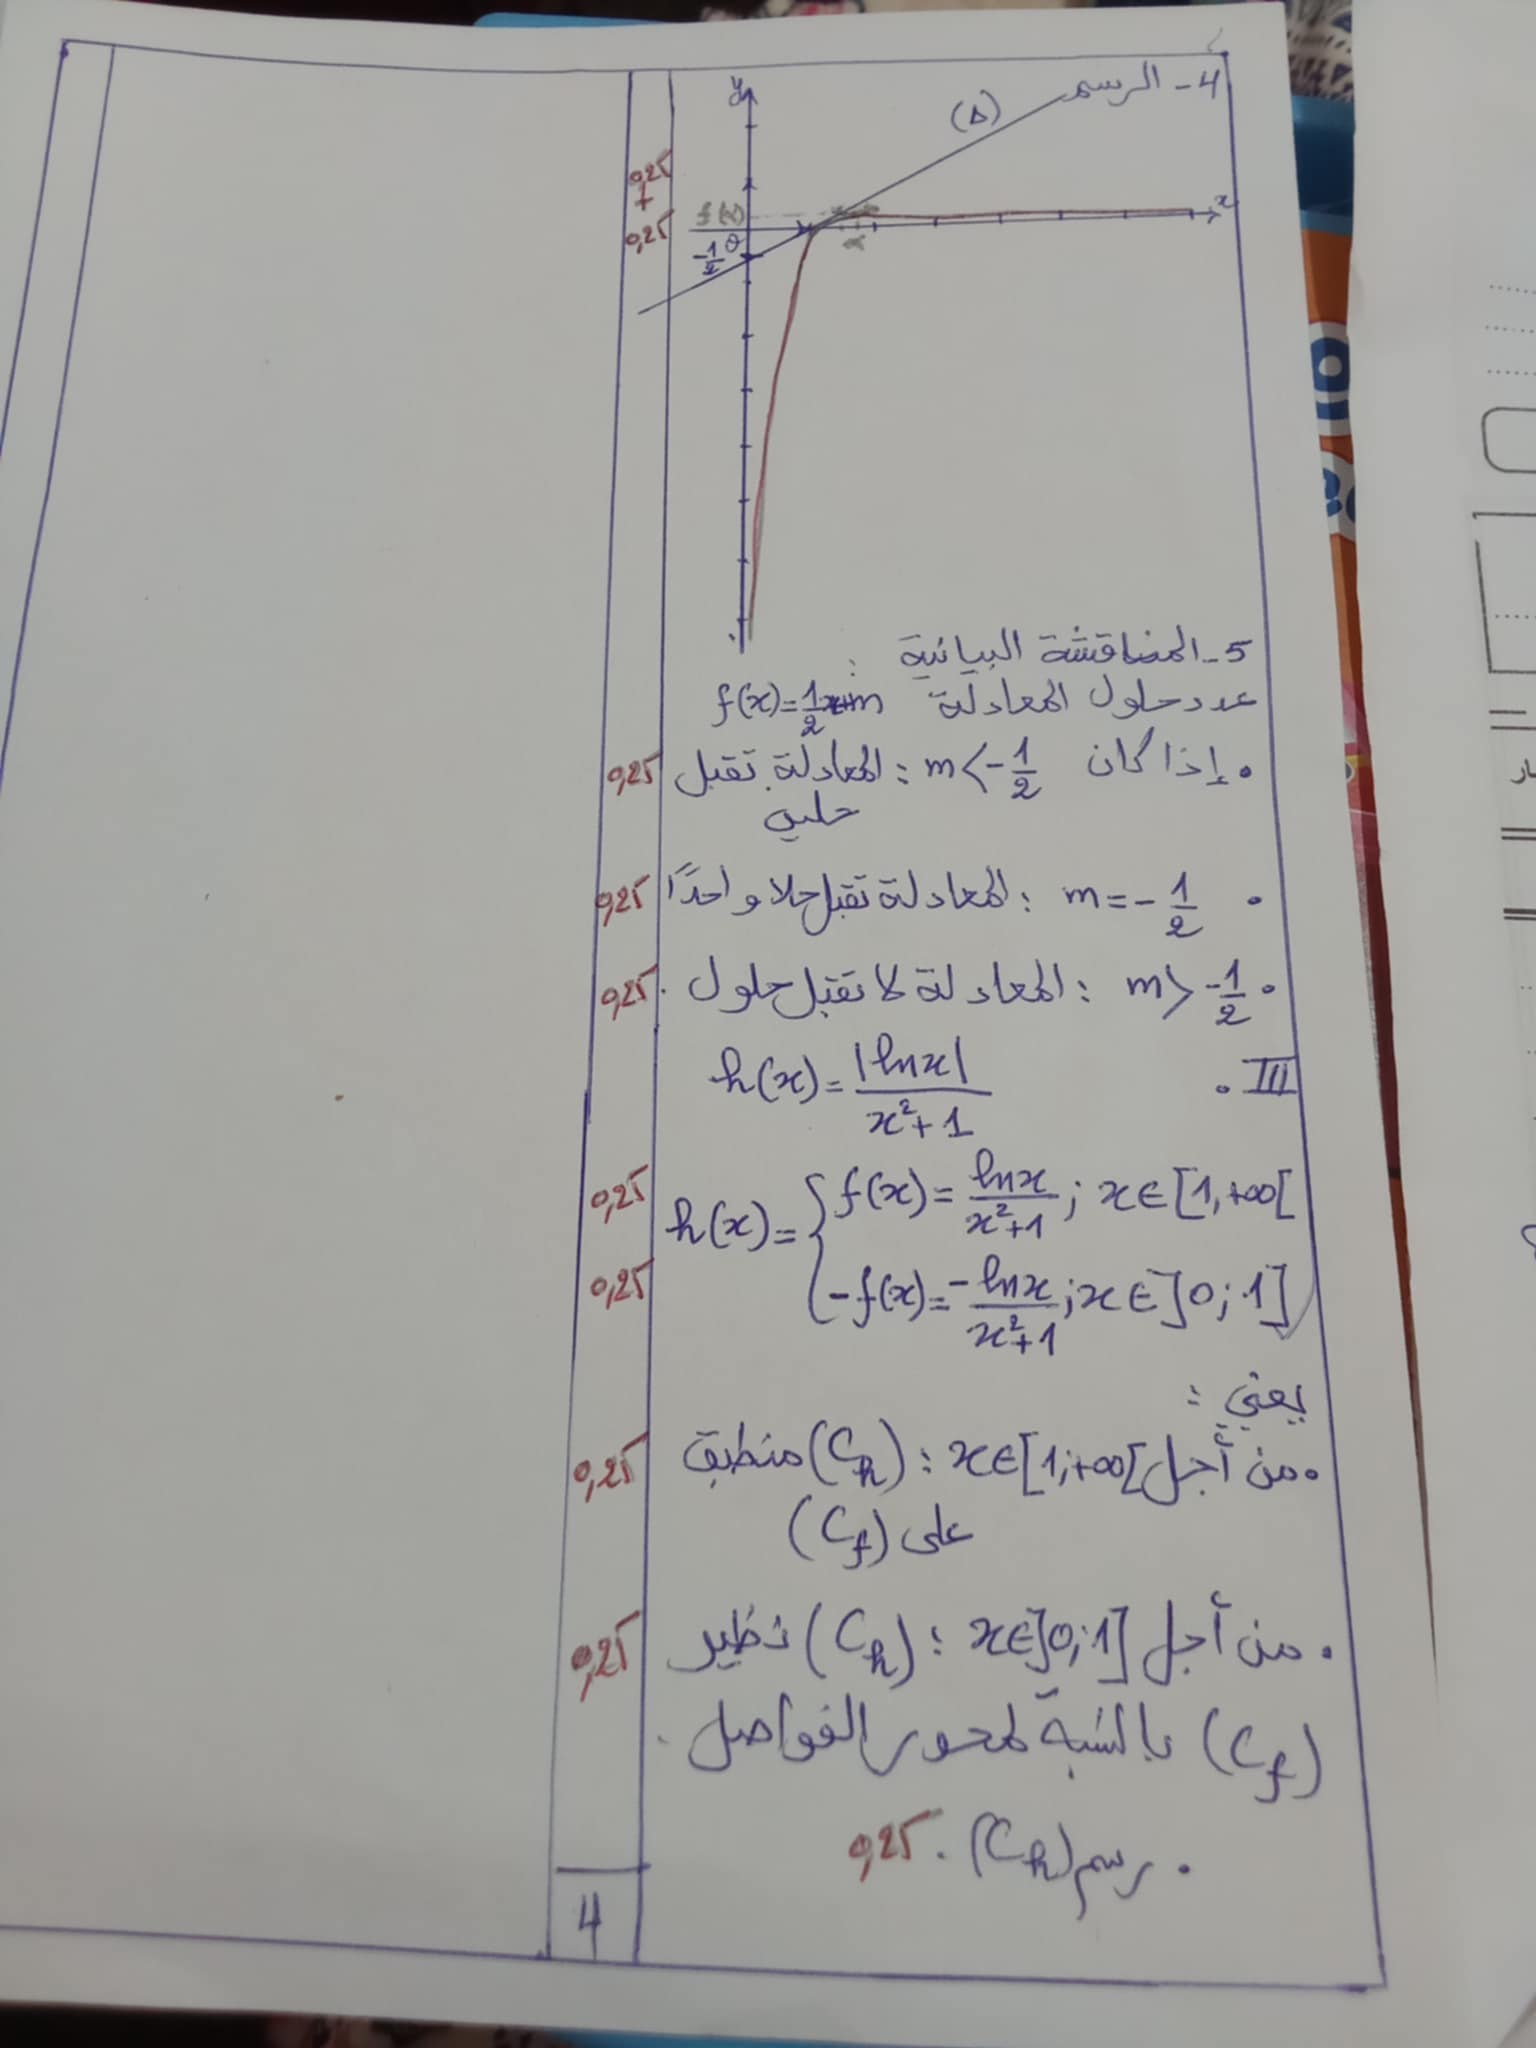 4 - الرسم
(Δ)
y
x
0,25
+
0,25
f(α)
α
0
-1/2
5 - المناقشة البيانية :
عدد حلول المعادلة f(x)=1/2x+m
• إذا كان m<-1/2 : المعادلة تقبل 0,25
حلين
• m=-1/2 : المعادلة تقبل حلا واحدًا 0,25
• m>-1/2 : المعادلة لا تقبل حلول . 0,25
III . h(x)=|lnx|/(x²+1)
h(x)= { f(x)=lnx/(x²+1) ; x∈[1,+∞[ 0,25
-f(x)=-lnx/(x²+1) ; x∈]0;1] 0,25
يعني :
• من أجل x∈[1;+∞[ : (Ch) منطبق 0,25
على (Cf)
• من أجل x∈]0;1] : (Ch) نظير 0,25
(Cf) بالنسبة لمحور الفواصل .
• رسم (Ch) . 0,25
4